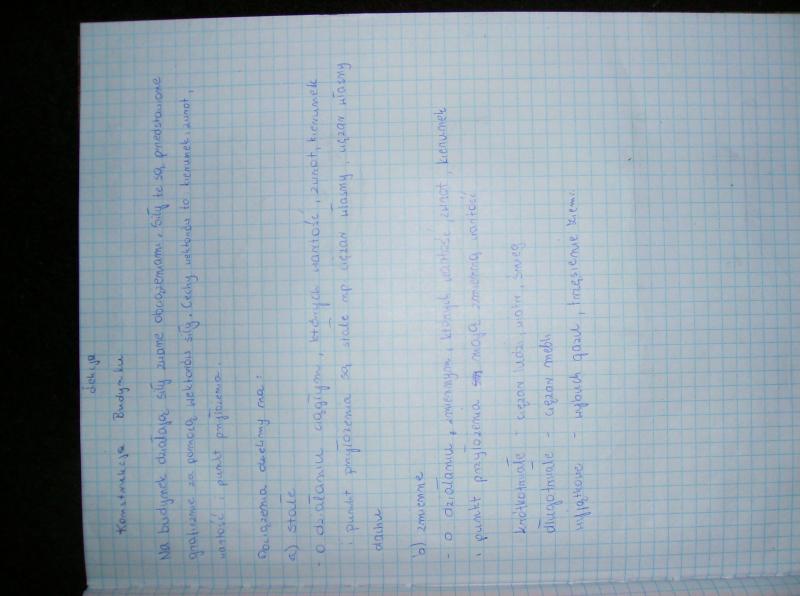 Lekcja
Konstrukcja Budynku
Na budynek działają siły zwane obciążeniami. Siły te są przedstawione
graficznie za pomocą wektorów siły. Cechy wektorów to kierunek, zwrot,
wartość i punkt przyłożenia.
Obciążenia dzielimy na:
a) stałe
- o działaniu ciągłym, których wartość, zwrot, kierunek
i punkt przyłożenia są stałe np ciężar własny, ciężar własny
dachu
b) zmienne
- o działaniu zmiennym, których wartość, zwrot, kierunek
i punkt przyłożenia mają zmienną wartość
krótkotrwałe - ciężar ludzi, wiatr, śnieg
długotrwałe - ciężar mebli
wyjątkowe - wybuch gazu, trzęsienie ziemi.